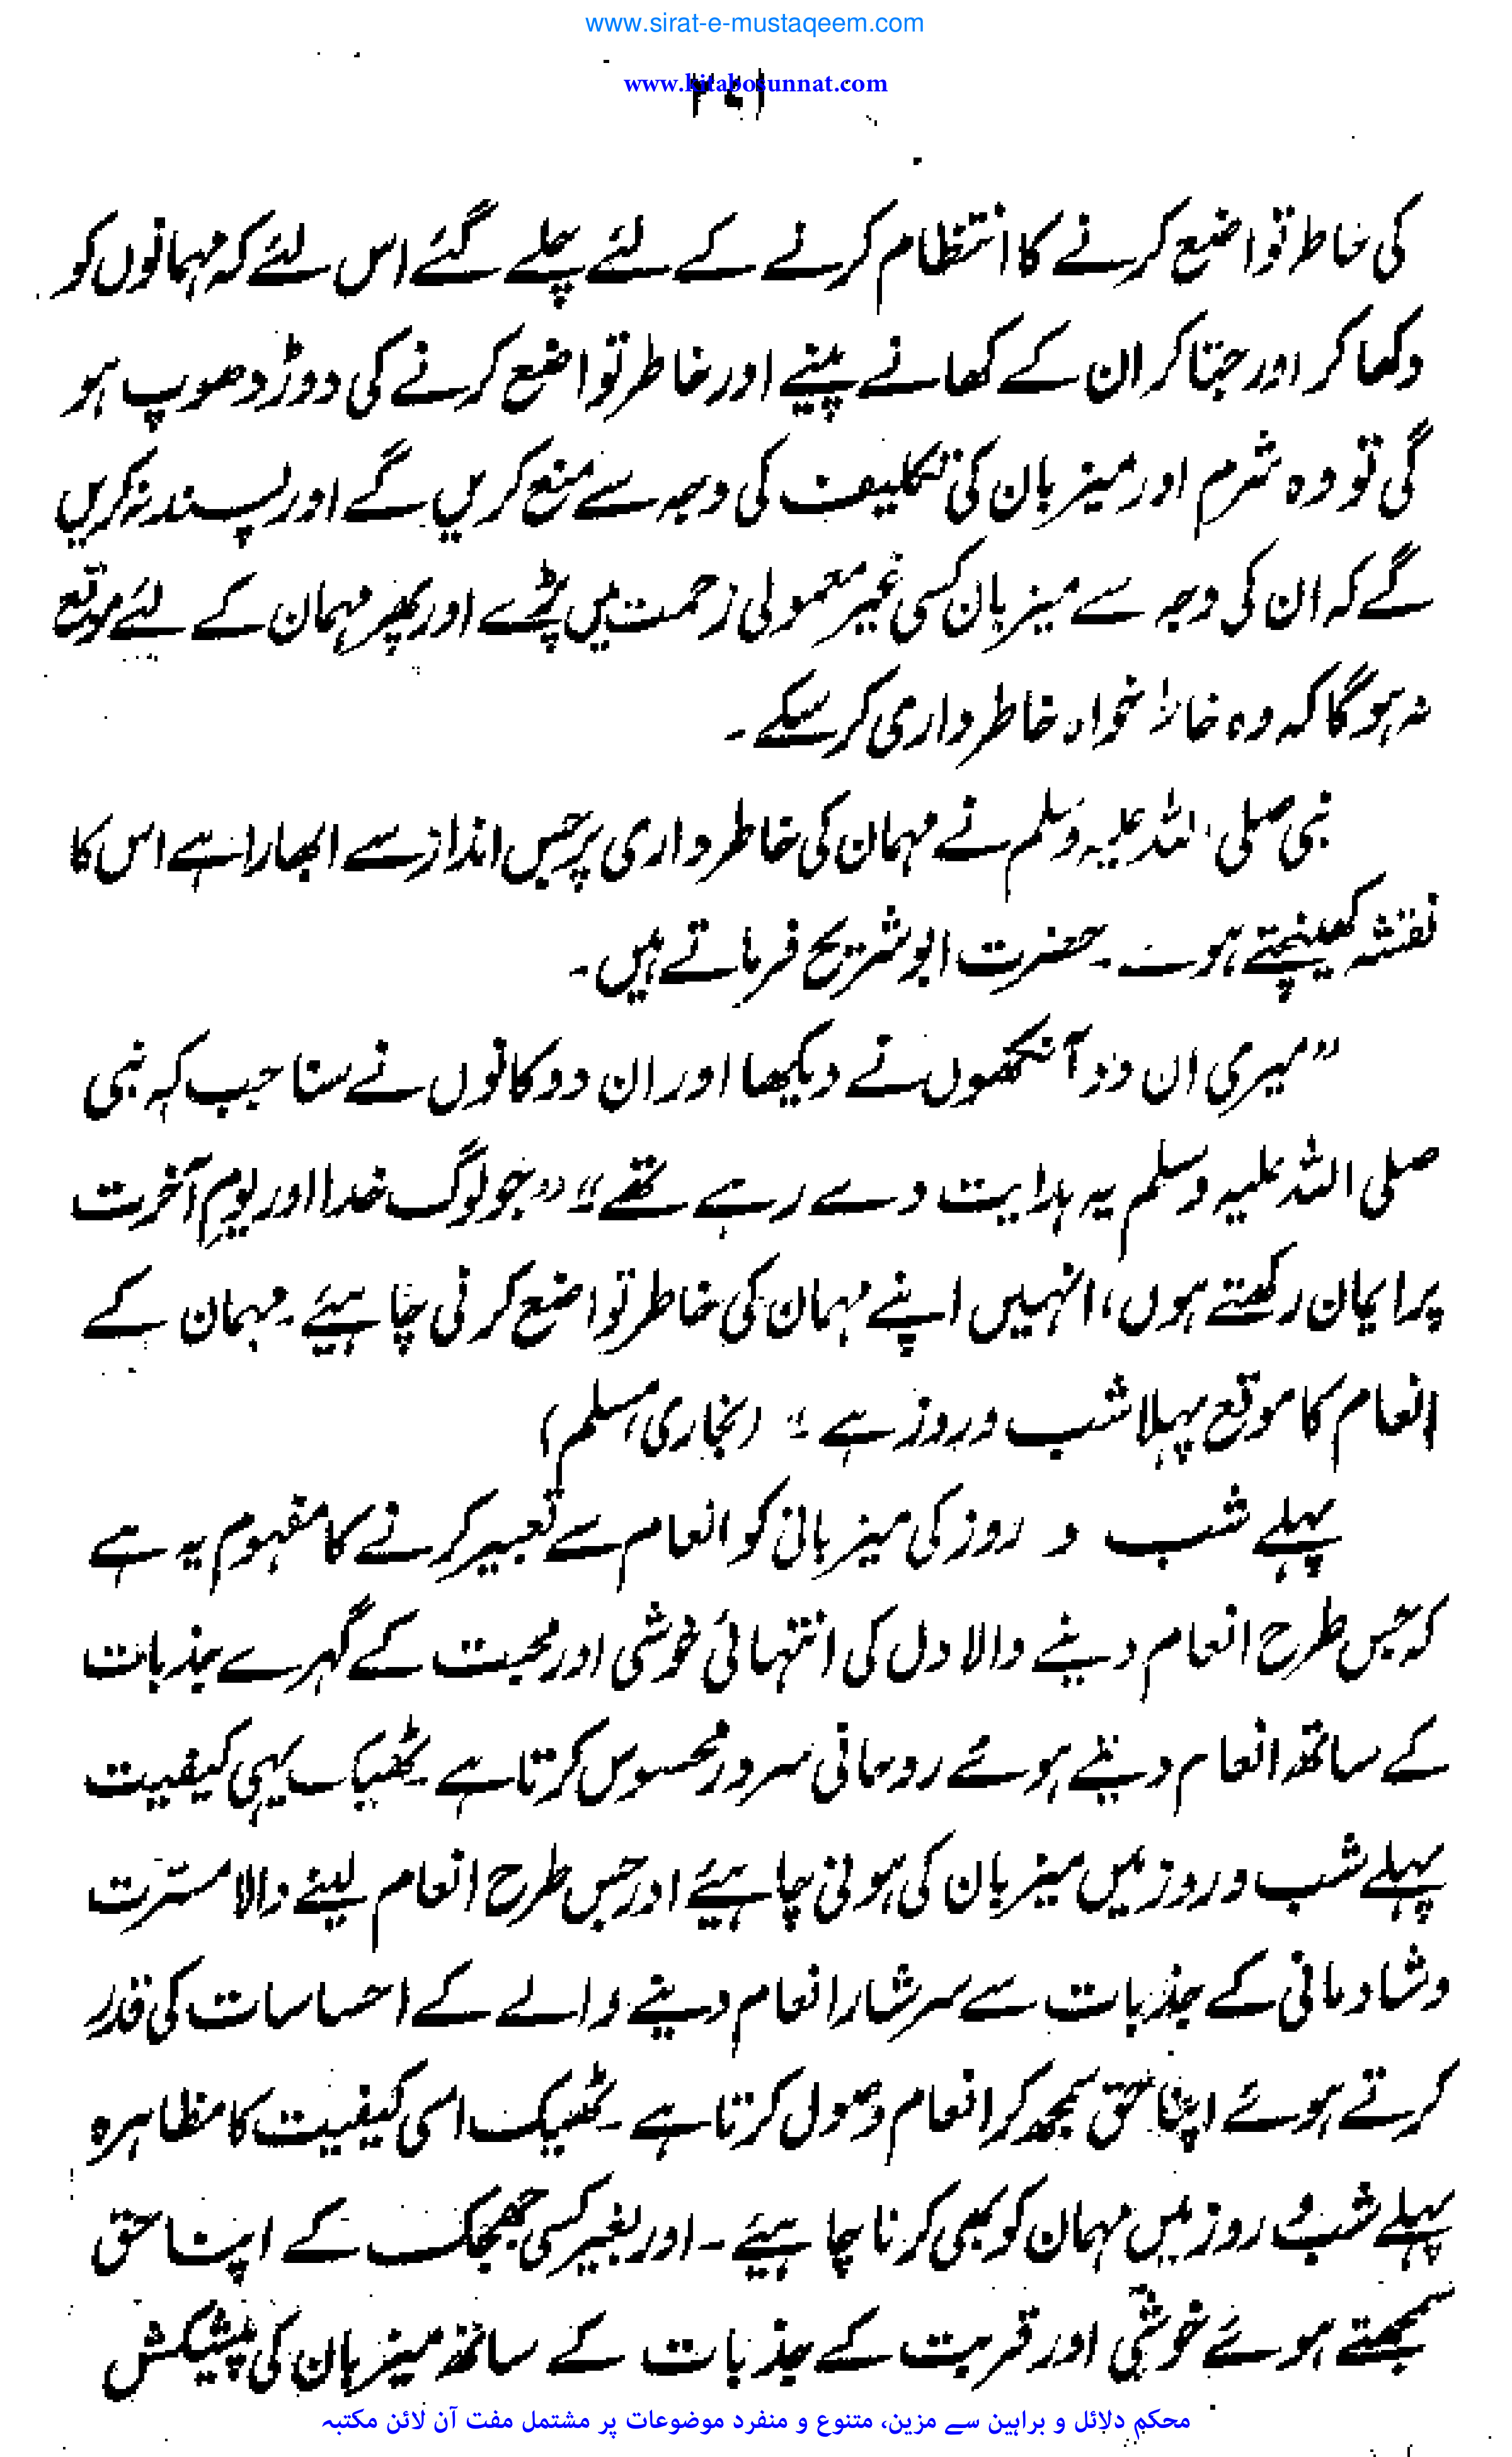 www.sirat-e-mustaqeem.com
www.kitabosunnat.com
کی خاطر تواضع کرنے کا انتظام کرنے کے لئے چلے گئے اس لئے کہ مہمانوں کو
دکھا کر اور جتا کر ان کے کھانے پینے اور خاطر تواضع کرنے کی دوڑ دھوپ ہو
گی تو وہ شرم اور میزبان کی تکلیف کی وجہ سے منع کریں گے اور پسند نہ کریں
گے کہ ان کی وجہ سے میزبان کسی غیر معمولی زحمت میں پڑے اور پھر مہمان کے لئے موقع
نہ ہوگا کہ وہ خاطر خواہ خاطر داری کر سکے ۔
نبی صلی اللہ علیہ وسلم نے مہمان کی خاطر داری پر جس انداز سے ابھارا ہے اس کا
نقشہ کھینچتے ہوئے ۔ حضرت ابو شریح فرماتے ہیں ۔
”میری ان دو آنکھوں نے دیکھا اور ان دو کانوں نے سنا جب کہ نبی
صلی اللہ علیہ وسلم یہ ہدایت دے رہے تھے“ ”جو لوگ خدا اور یومِ آخرت
پر ایمان رکھتے ہوں، انہیں اپنے مہمان کی خاطر تواضع کرنی چاہیئے ۔ مہمان کے
انعام کا موقع پہلا شب و روز ہے ۔“ (بخاری، مسلم)
پہلے شب و روز کی میزبانی کو انعام سے تعبیر کرنے کا مفہوم یہ ہے
کہ جس طرح انعام دینے والا دل کی انتہائی خوشی اور محبت کے گہرے جذبات
کے ساتھ انعام دیتے ہوئے روحانی سرور محسوس کرتا ہے ۔ ٹھیک یہی کیفیت
پہلے شب و روز میں میزبان کی ہونی چاہیئے اور جس طرح انعام لینے والا مسرّت
و شادمانی کے جذبات سے سرشار انعام دینے والے کے احساسات کی قدر
کرتے ہوئے اپنا حق سمجھ کر انعام وصول کرتا ہے ۔ ٹھیک اسی کیفیت کا مظاہرہ
پہلے شب و روز میں مہمان کو بھی کرنا چاہیئے ۔ اور بغیر کسی جھجک کے اپنا حق
سمجھتے ہوئے خوشی اور قربت کے جذبات کے ساتھ میزبان کی پیشکش
محکم دلائل و براہین سے مزین، متنوع و منفرد موضوعات پر مشتمل مفت آن لائن مکتبہ